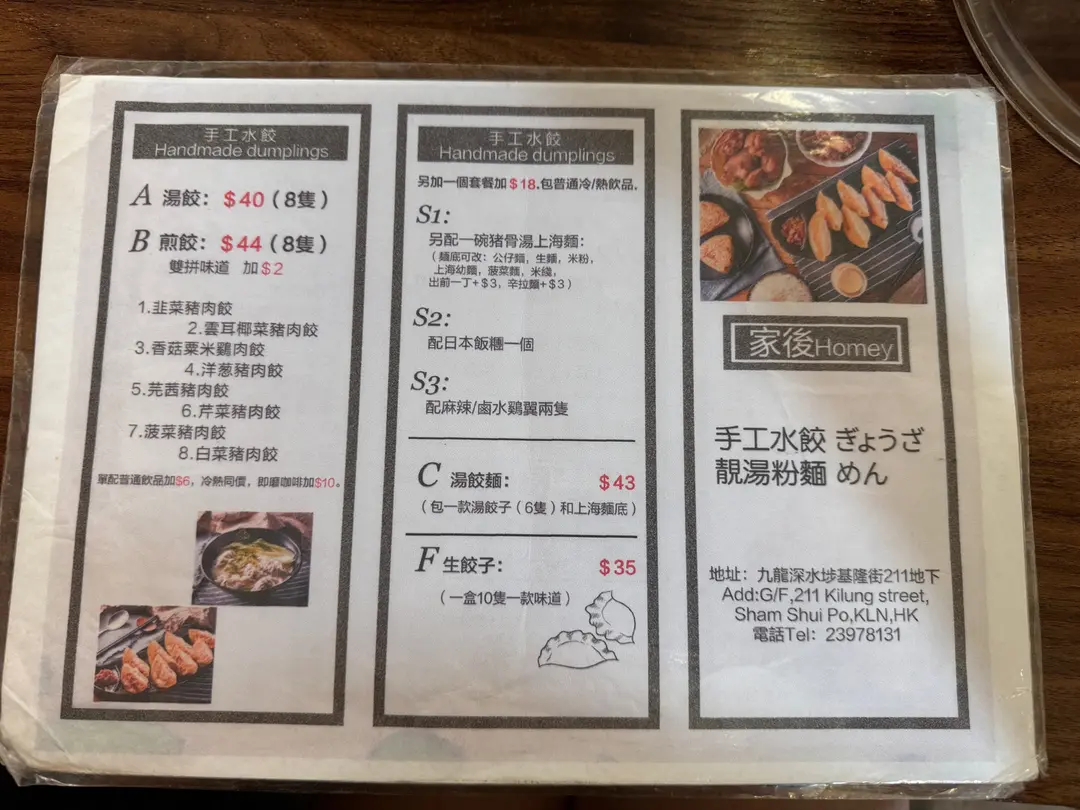 手工水餃
Handmade dumplings
A 湯餃：$40（8隻）
B 煎餃：$44（8隻）
雙拼味道 加$2
1.韭菜豬肉餃
2.雲耳椰菜豬肉餃
3.香菇粟米鷄肉餃
4.洋葱豬肉餃
5.芫茜豬肉餃
6.芹菜豬肉餃
7.菠菜豬肉餃
8.白菜豬肉餃
單配普通飲品加$6，冷熱同價，即磨咖啡加$10。
手工水餃
Handmade dumplings
另加一個套餐加$18.包普通冷/熱飲品，
S1:
另配一碗豬骨湯上海麵：
（麵底可改：公仔麵，生麵，米粉，
上海幼麵，菠菜麵，米綫，
出前一丁+$3，辛拉麵+$3）
S2:
配日本飯糰一個
S3:
配麻辣/鹵水鷄翼兩隻
C 湯餃麵： $43
（包一款湯餃子（6隻）和上海麵底）
F 生餃子： $35
（一盒10隻一款味道）
家後Homey
手工水餃 ぎょうざ
靚湯粉麵 めん
地址：九龍深水埗基隆街211地下
Add:G/F,211 Kilung street,
Sham Shui Po,KLN,HK
電話Tel：23978131